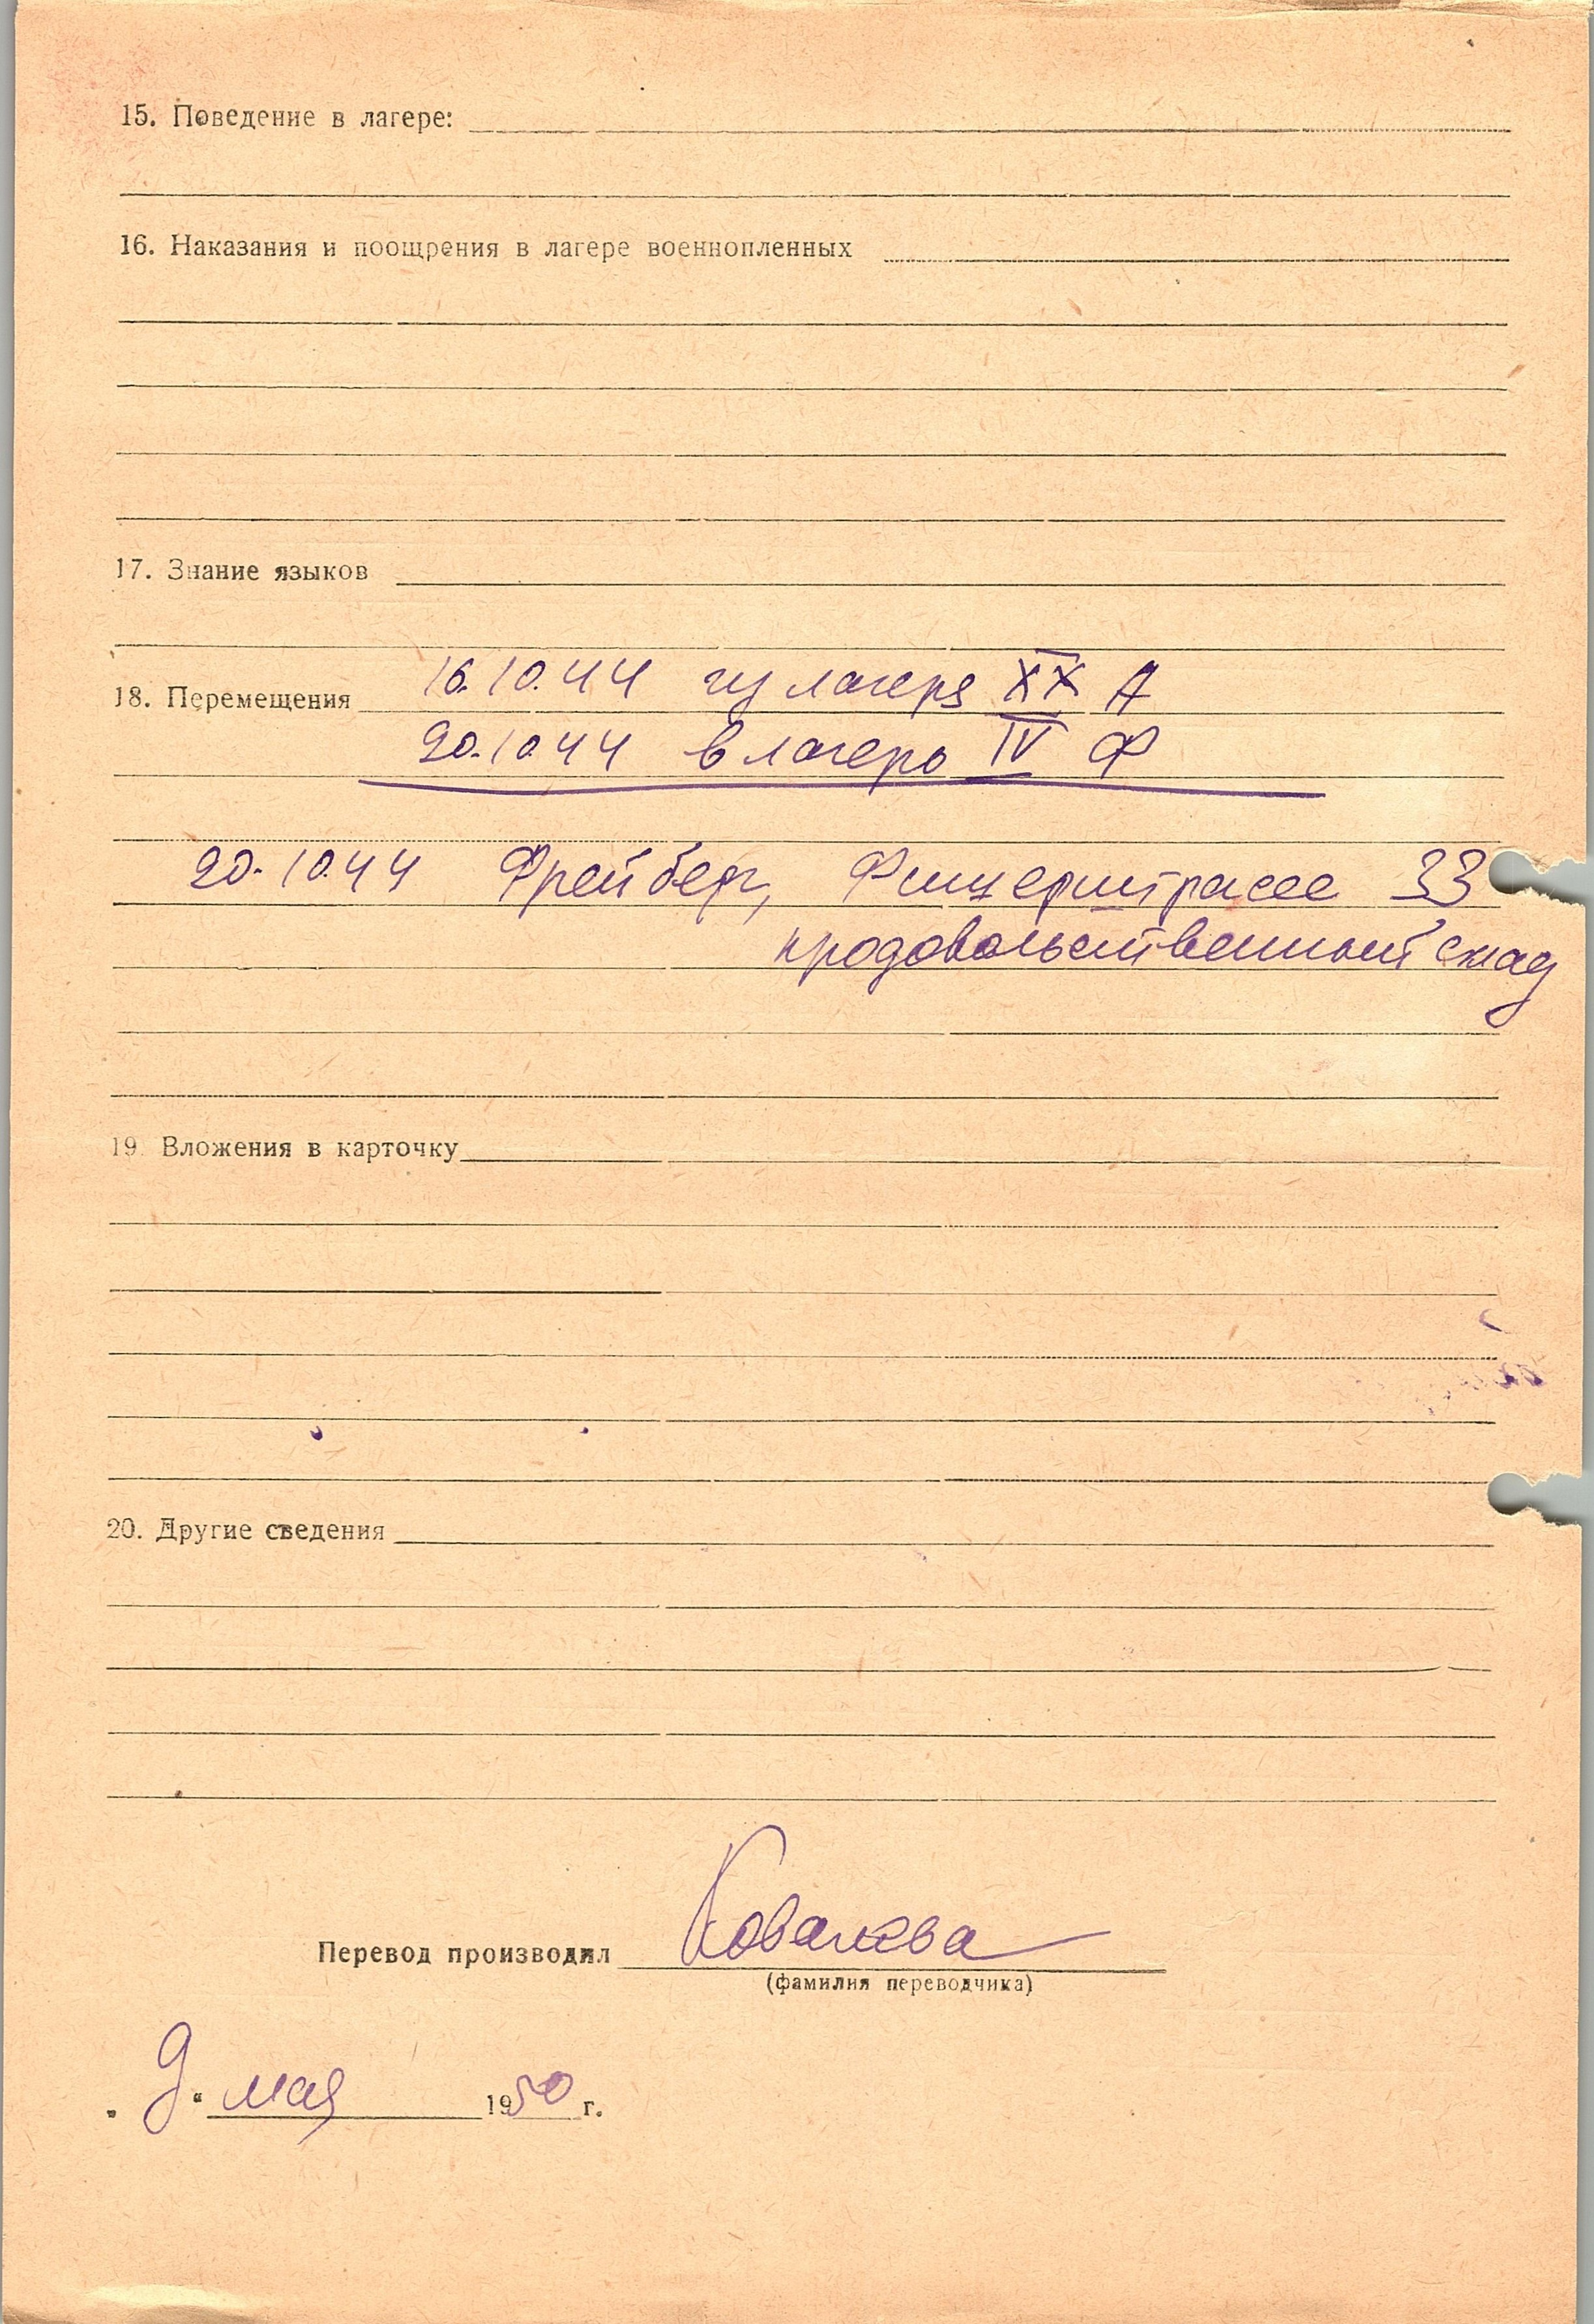 15. Поведение в лагере:
16. Наказания и поощрения в лагере военнопленных
17. Знание языков
16.10.44 из лагеря XX А
18. Перемещения
20.10.44 в лагерь IV Ф
20.10.44 Фрейберг, Фишерштрассе 33
продовольственный склад
19. Вложения в карточку
20. Другие сведения
Перевод производил Ковалева
(фамилия переводчика)
„ 9 “ мая 1950 г.